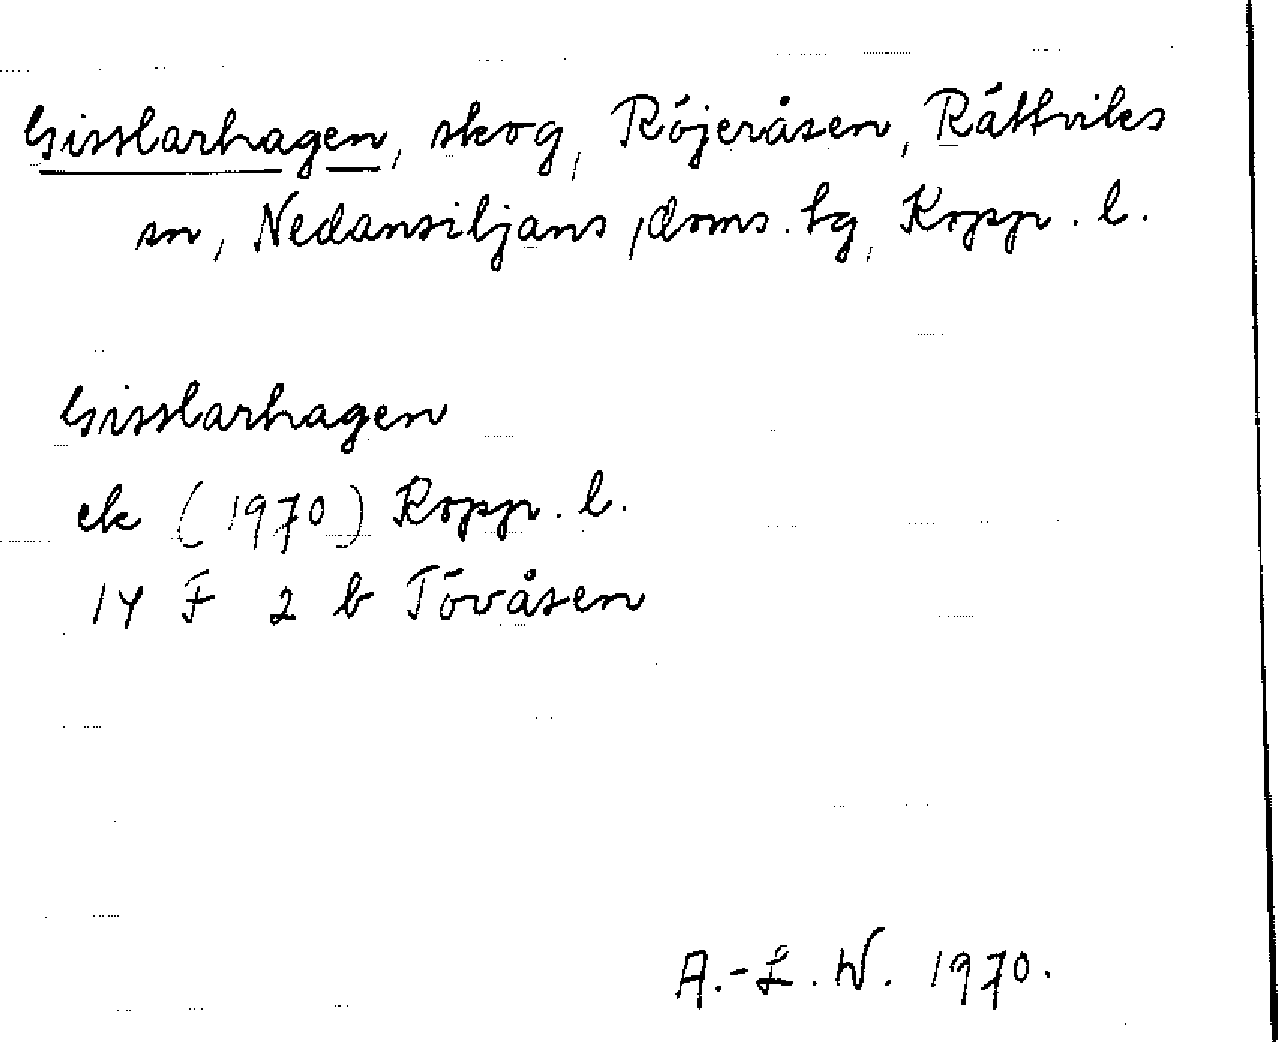 Gisslarhagen, skog, Röjeråsen, Rättviks
sn, Nedansiljans doms.tg, Kopp. l.
Gisslarhagen
ek (1970) Kopp. l.
14 F 2 b Tövåsen
A.-L. W. 1970.